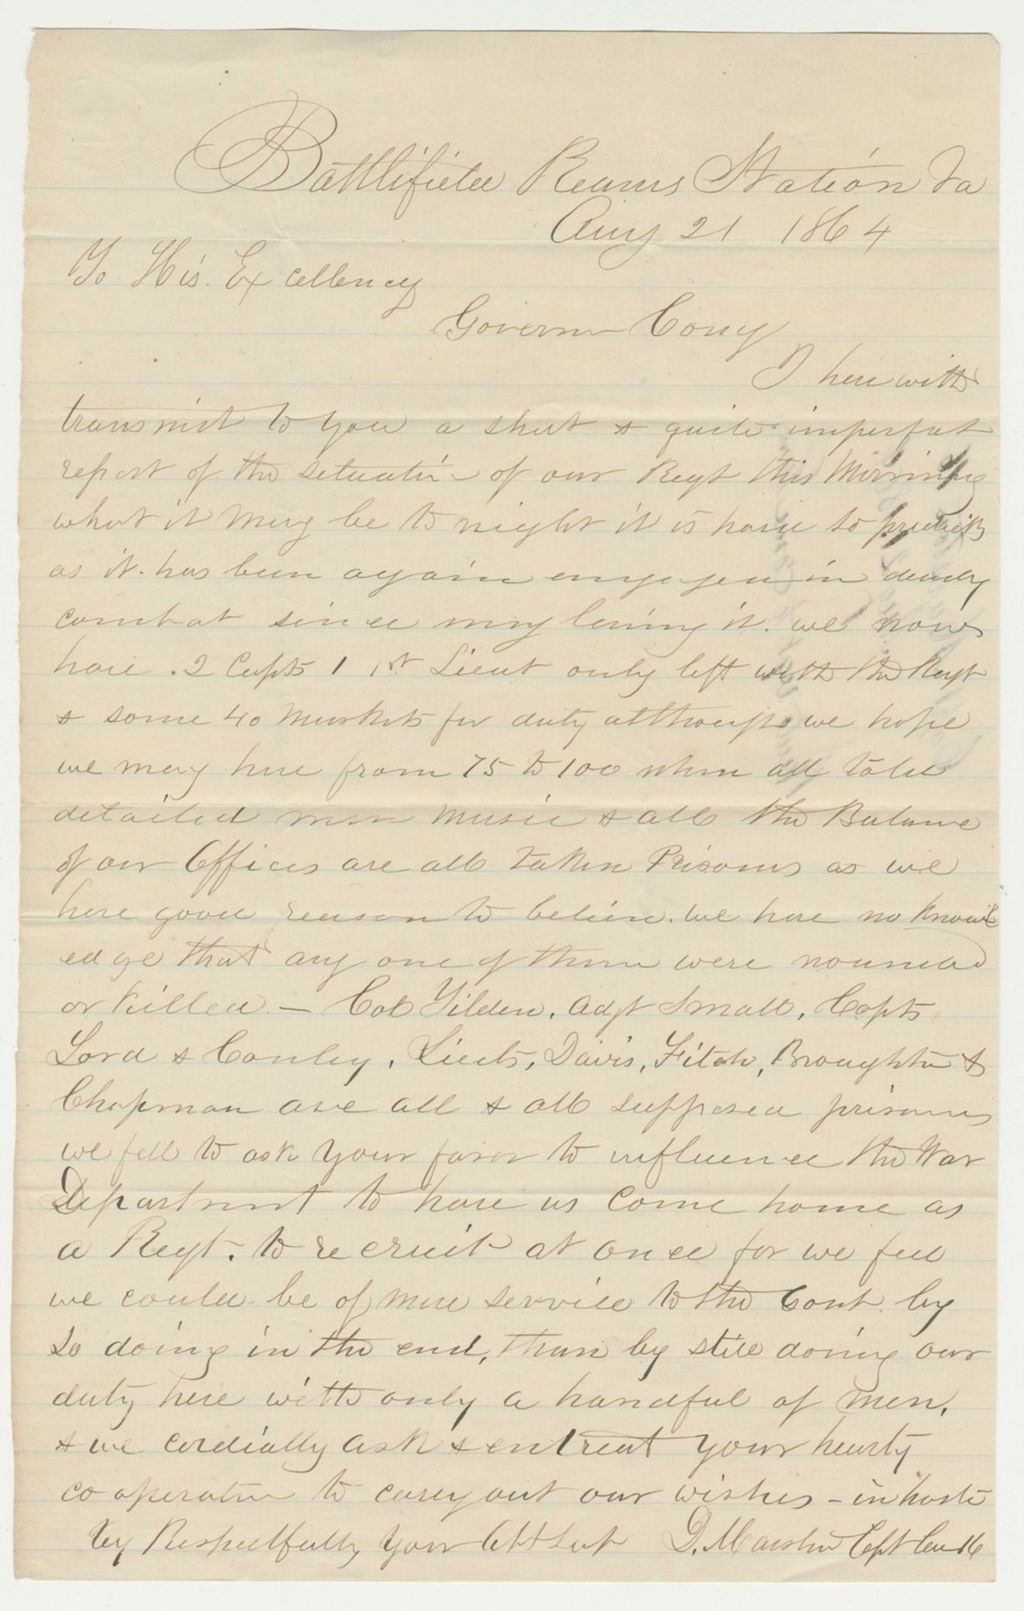 Battlifield Reams Station Va
Aug 21 1864
To His. Excellency
Governor Cony
I here with
transmit to you a short & quite imperfat
report of the situation of our Regt this Morning
what it May be to night it is hard to predict
as it has been again engaged in deadly
combat since my leaving it. we now
have . 2 Capts 1 1st Lieut only left with the Regt
& some 40 Muskets for duty although we hope
we may have from 75 to 100 when all told
detailed men Music & all the Balance
of our Offices are all taken Prisoners as we
have good reason to believe. we have no knowl
edge that any one of them were wounded
or killed - Col Tilden. Adjt Small, Capts
Lord & Conley, Lieuts, Davis, Fitch, Broughton &
Chapman are all & all supposed prisoners
we feel to ask your favor to influence the War
Department to have us come home as
a Regt. to recruit at once for we feel
we could be of more service to the Govt by
so doing in the end, than by still doing our
duty here with only a handful of men.
& we cordially ask & entreat your hearty
co operation to carry out our wishes - in haste
Respectfully your Obt Svt D. Marston Capt Com 16